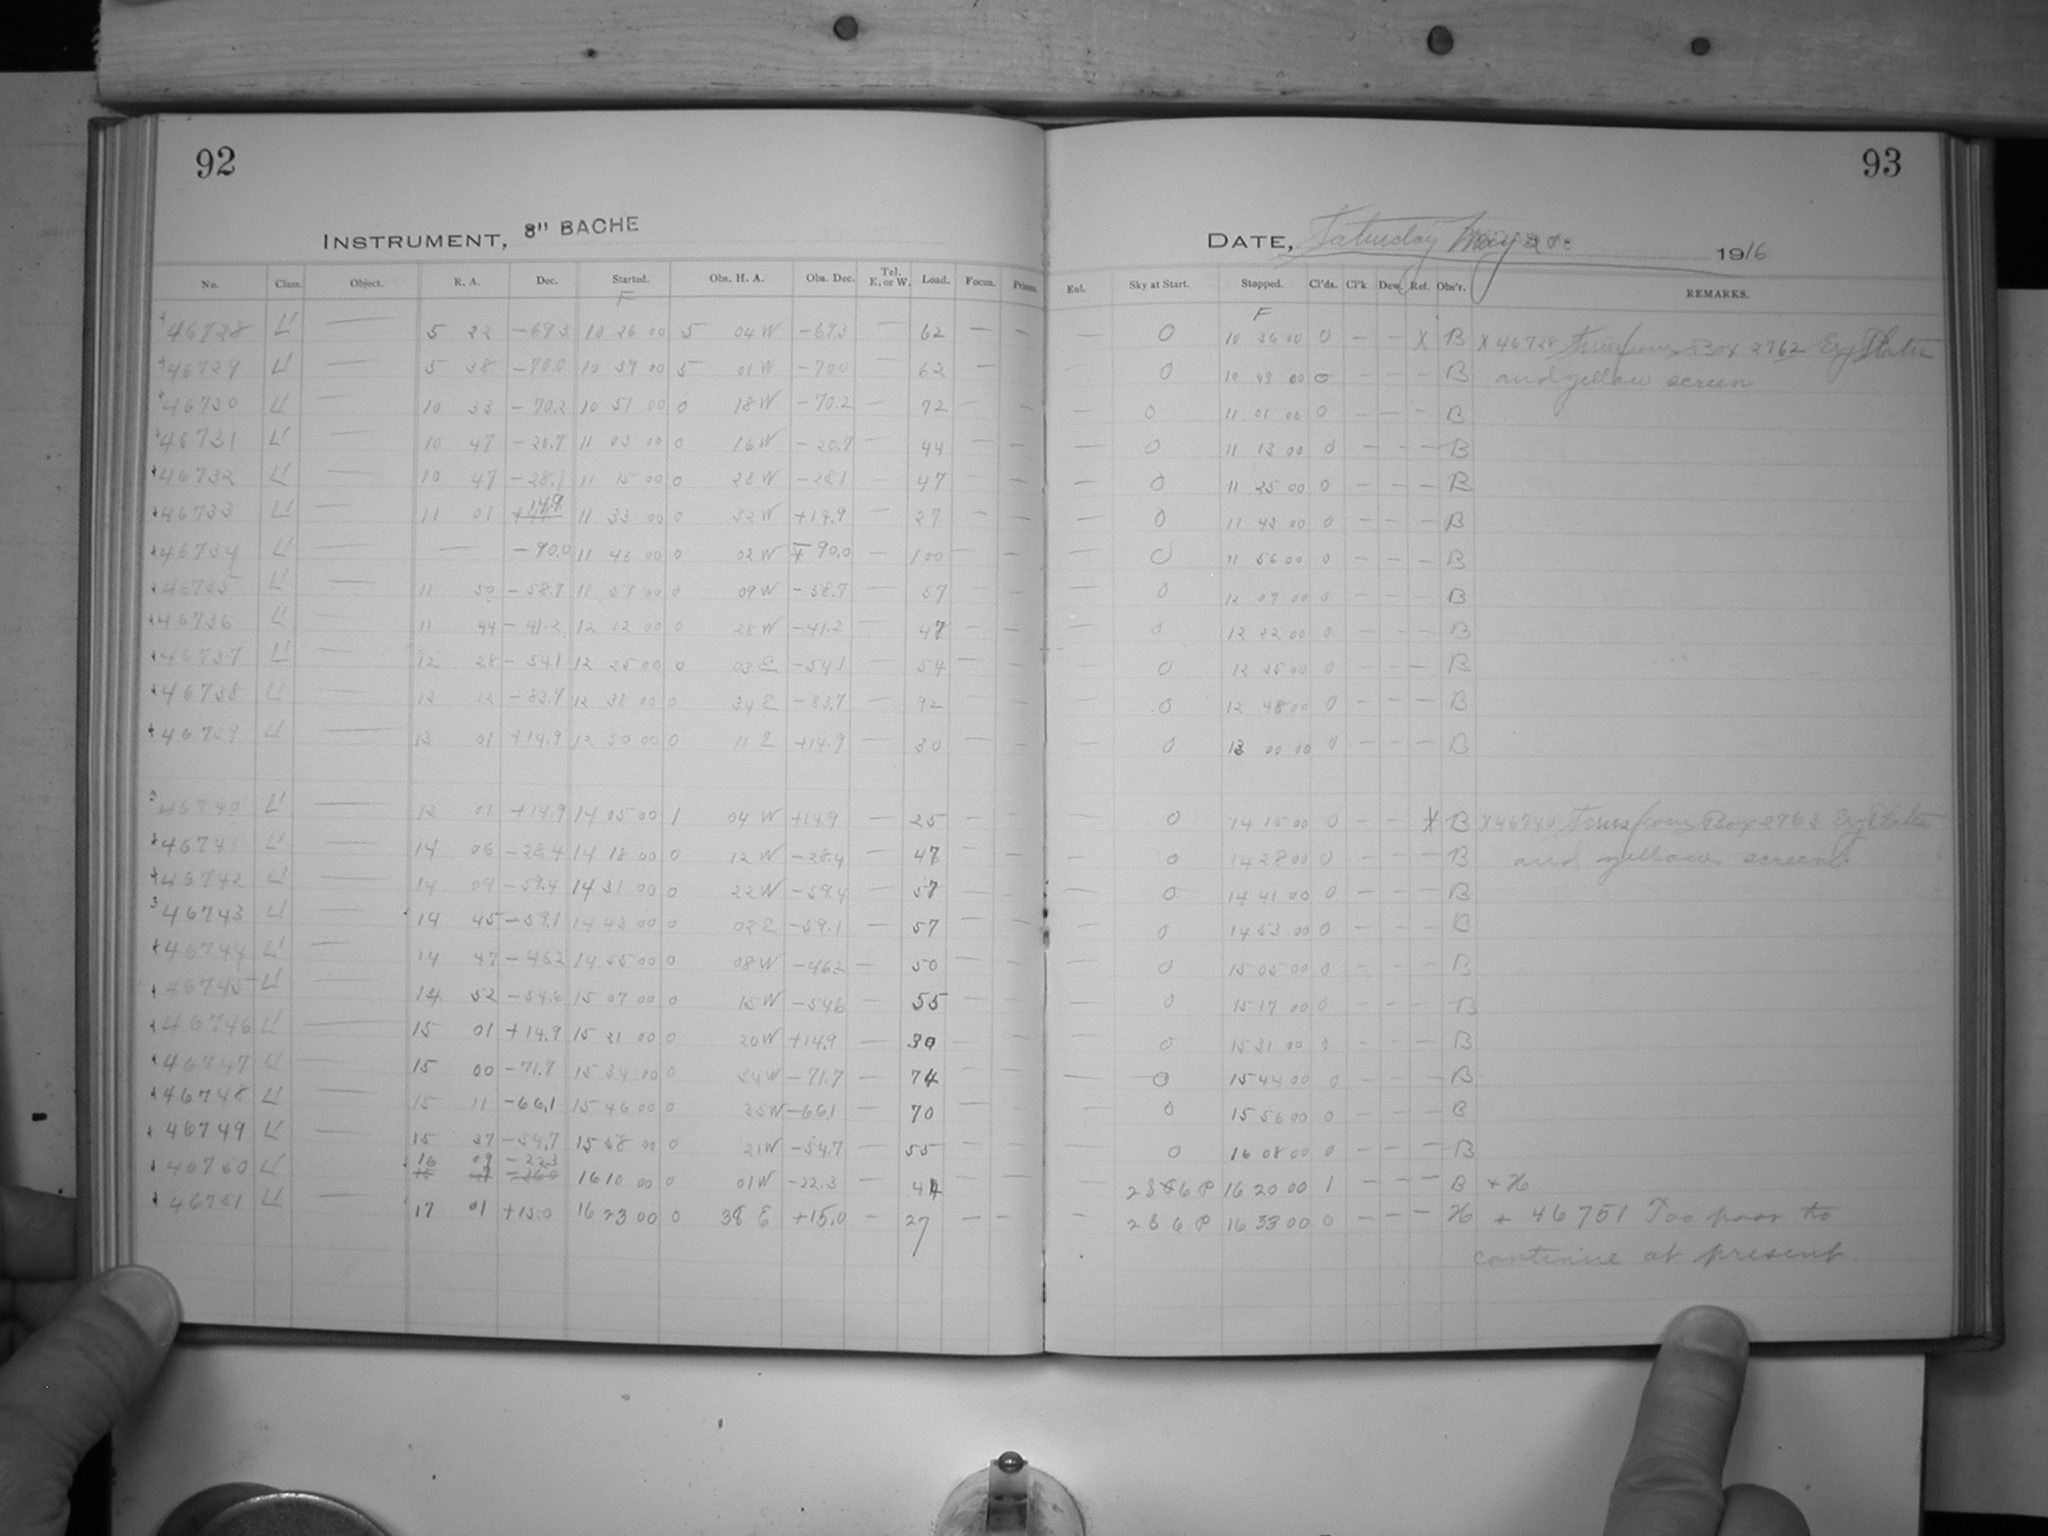 92
93
INSTRUMENT, 8" BACHE
DATE, Saturday May 20 1916
No. Class. Object. R. A. Dec. Started. Obs. H. A. Obs. Dec. Tel. E. or W. Load. Focus. Prisms. Enl. Sky at Start. Stopped. Cl'ds. Cl'k Dew. Ref. Obs'r. REMARKS.
F F
46728 L' — 5 22 −69.3 10 26 00 5 04 W −69.3 — 62 — — — 0 10 36 00 0 — — X B X 46728 Box 2762 Plates
46729 L' — 5 38 −70.0 10 39 00 5 01 W −70.0 — 62 — — 0 10 49 00 0 — — — B and yellow screen
46730 L' — 10 33 −70.2 10 51 00 0 18 W −70.2 — 72 — — — 0 11 01 00 0 — — — B
46731 L' — 10 47 −20.7 11 03 00 0 16 W −20.7 — 44 — — — 0 11 13 00 0 — — — B
46732 L' — 10 47 −28.1 11 15 00 0 28 W −28.1 — 47 — — — 0 11 25 00 0 — — — B
46733 L' — 11 01 +14.9 11 33 00 0 32 W +14.9 — 27 — — — 0 11 43 00 0 — — — B
46734 L' — — −90.0 11 46 00 0 02 W −90.0 — 100 — — — 0 11 56 00 0 — — — B
46735 L' — 11 50 −58.7 11 59 00 0 09 W −58.7 — 57 — — — 0 12 09 00 0 — — — B
46736 L' — 11 44 −41.2 12 12 00 0 28 W −41.2 — 47 — — — 0 12 22 00 0 — — — B
46737 L' — 12 28 −54.1 12 25 00 0 03 E −54.1 — 54 — — — 0 12 35 00 0 — — — B
46738 L' — 13 12 −83.7 12 38 00 0 34 E −83.7 — 92 — — — 0 12 48 00 0 — — — B
46739 L' — 13 01 +14.9 12 50 00 0 11 E +14.9 — 30 — — — 0 13 00 00 0 — — — B
46740 L' — 13 01 +14.9 14 05 00 1 04 W +14.9 — 25 — — — 0 14 15 00 0 — — X B X 46740 Box 2763 Plates
46741 L' — 14 06 −28.4 14 18 00 0 12 W −28.4 — 47 — — — 0 14 28 00 0 — — — B and yellow screen.
46742 L' — 14 09 −59.4 14 31 00 0 22 W −59.4 — 57 — — — 0 14 41 00 0 — — — B
46743 L' — 14 45 −59.1 14 43 00 0 02 E −59.1 — 57 — — — 0 14 53 00 0 — — — B
46744 L' — 14 47 −46.2 14 55 00 0 08 W −46.2 — 50 — — — 0 15 05 00 0 — — — B
46745 L' — 14 52 −54.6 15 07 00 0 15 W −54.6 — 55 — — — 0 15 17 00 0 — — — B
46746 L' — 15 01 +14.9 15 21 00 0 20 W +14.9 — 30 — — — 0 15 31 00 0 — — — B
46747 L' — 15 00 −71.7 15 34 00 0 34 W −71.7 — 74 — — — 0 15 44 00 0 — — — B
46748 L' — 15 11 −66.1 15 46 00 0 35 W −66.1 — 70 — — — 0 15 56 00 0 — — — B
46749 L' — 15 37 −54.7 15 58 00 0 21 W −54.7 — 55 — — — 0 16 08 00 0 — — — B
46750 L' — 16 09 −22.3 16 10 00 0 01 W −22.3 — 44 — — 2 8 6 P 16 20 00 1 — — — B + H
46751 L' — 17 01 +15.0 16 23 00 0 38 E +15.0 — 27 — — — 2 8 6 P 16 33 00 0 — — — H + 46751 Too poor to
continue at present.